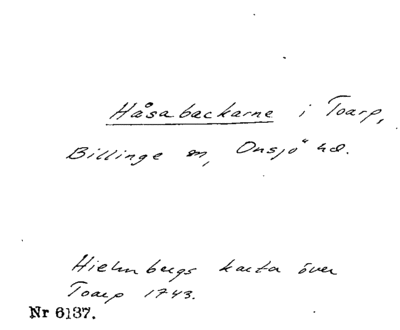 Håsabackarne i Toarp,
Billinge sn, Onsjö hd.
Hielmbergs karta över
Toarp 1743.
Nr 6137.